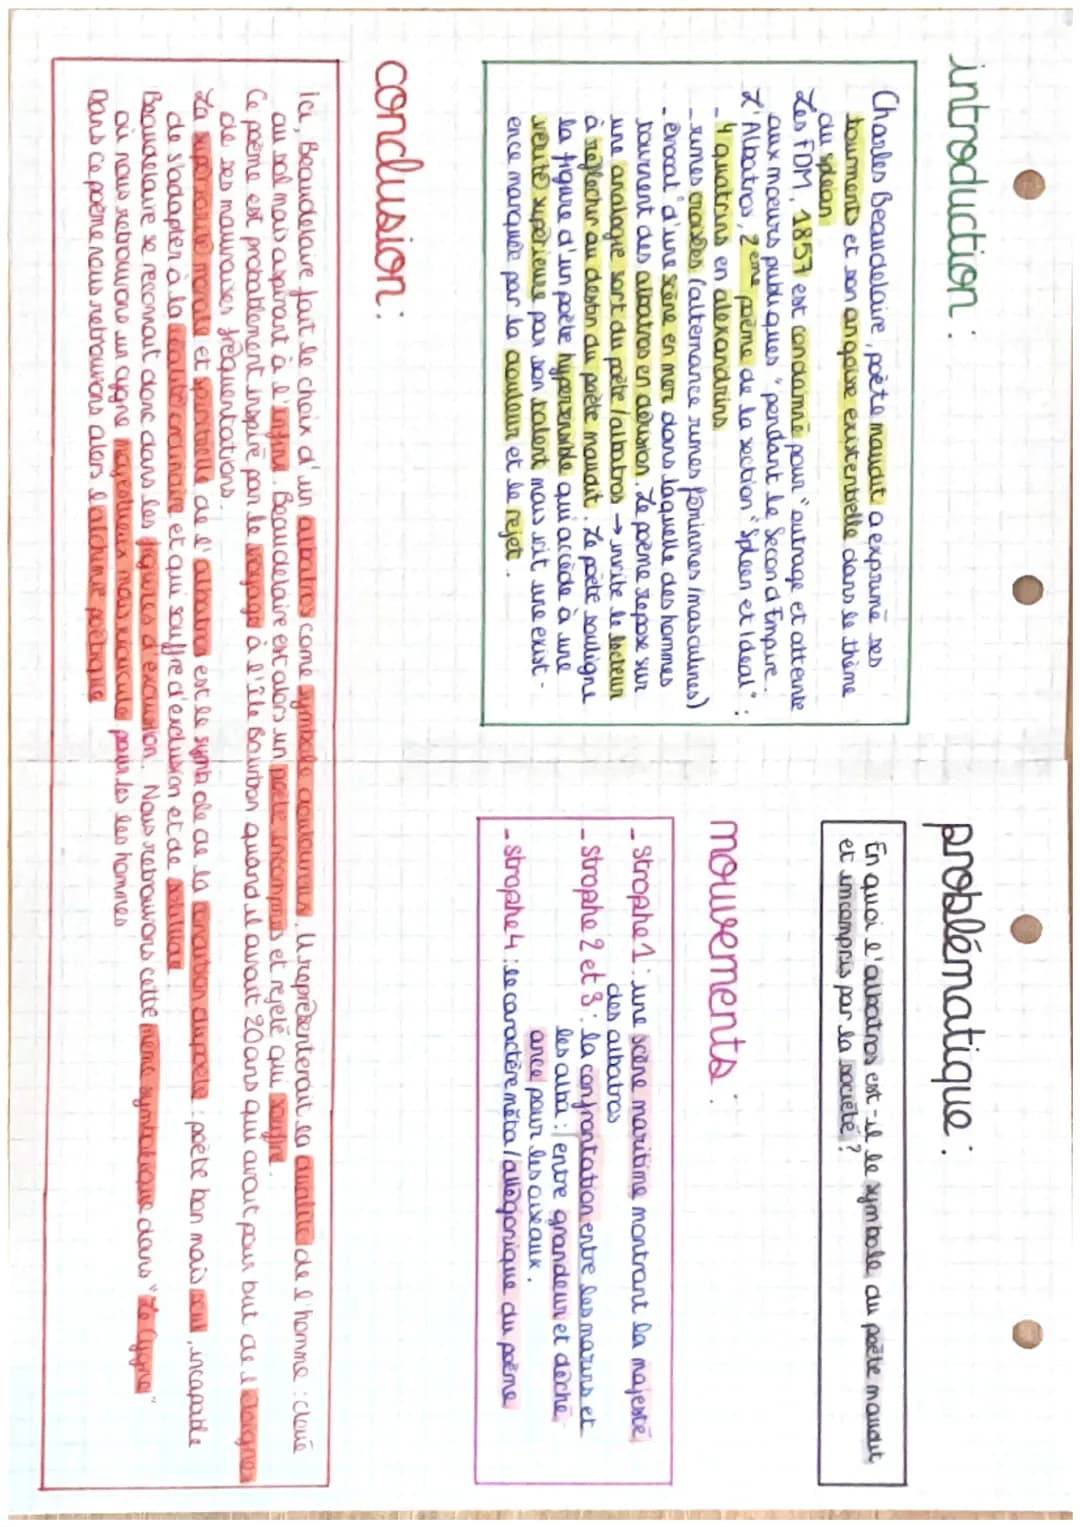 introduction :
Charles Beaudelaire, poète maudit a exprimé ses
tourments et son angoisse existentielle dans le thème
du spleen.
Les FDM, 1857 est condamné pour "outrage et atteinte
aux moeurs publiques" pendant le Second Empire.
L'Albatros, 2ème poème de la section "Spleen et Idéal" :
- 4 quatrains en alexandrins
- rimes croisées (alternance rimes féminines/masculines)
- évocat° d'une scène en mer dans laquelle des hommes
tournent des albatros en dérision. Le poème repose sur
une analogie sort du poète/albatros → invite le lecteur
à réfléchir au destin du poète maudit. Le poète souligne
la figure d'un poète hypersensible qui accède à une
vérité supérieure par son talent mais vit une exist-
ence marquée par la douleur et le rejet.
problématique :
En quoi l'albatros est-il le symbole du poète maudit
et incompris par la société ?
mouvements :
- Strophe 1 : une scène maritime montrant la majesté
des albatros
- Strophe 2 et 3 : la confrontation entre les marins et
les alba : entre grandeur et déché-
ance pour les oiseaux.
- Strophe 4 : le caractère méta/allégorique du poème
conclusion :
Ici, Beaudelaire fait le choix d'un albatros come symbole douloureux. Il représenterait la dualité de l'homme : cloué
au sol mais aspirant à l'infini. Beaudelaire est alors un poète incompris et rejeté qui souffre.
Ce poème est probablement inspiré par le voyage à l'île Bourbon quand il avait 20 ans qui avait pour but de l'éloigner
de ses mauvaises fréquentations.
La supériorité morale et spirituelle de l'albatros est le symbole de la condition du poète : poète bon mais seul, incapable
de s'adapter à la réalité ordinaire et qui souffre d'exclusion et de solitude
Beaudelaire se reconnait donc dans les figures d'exclusion. Nous retrouvons cette même symbolique dans "Le Cygne"
où nous retrouvons un cygne majestueux mais ridicule pour les hommes
Dans ce poème nous retrouvons alors l'alchimie poétique